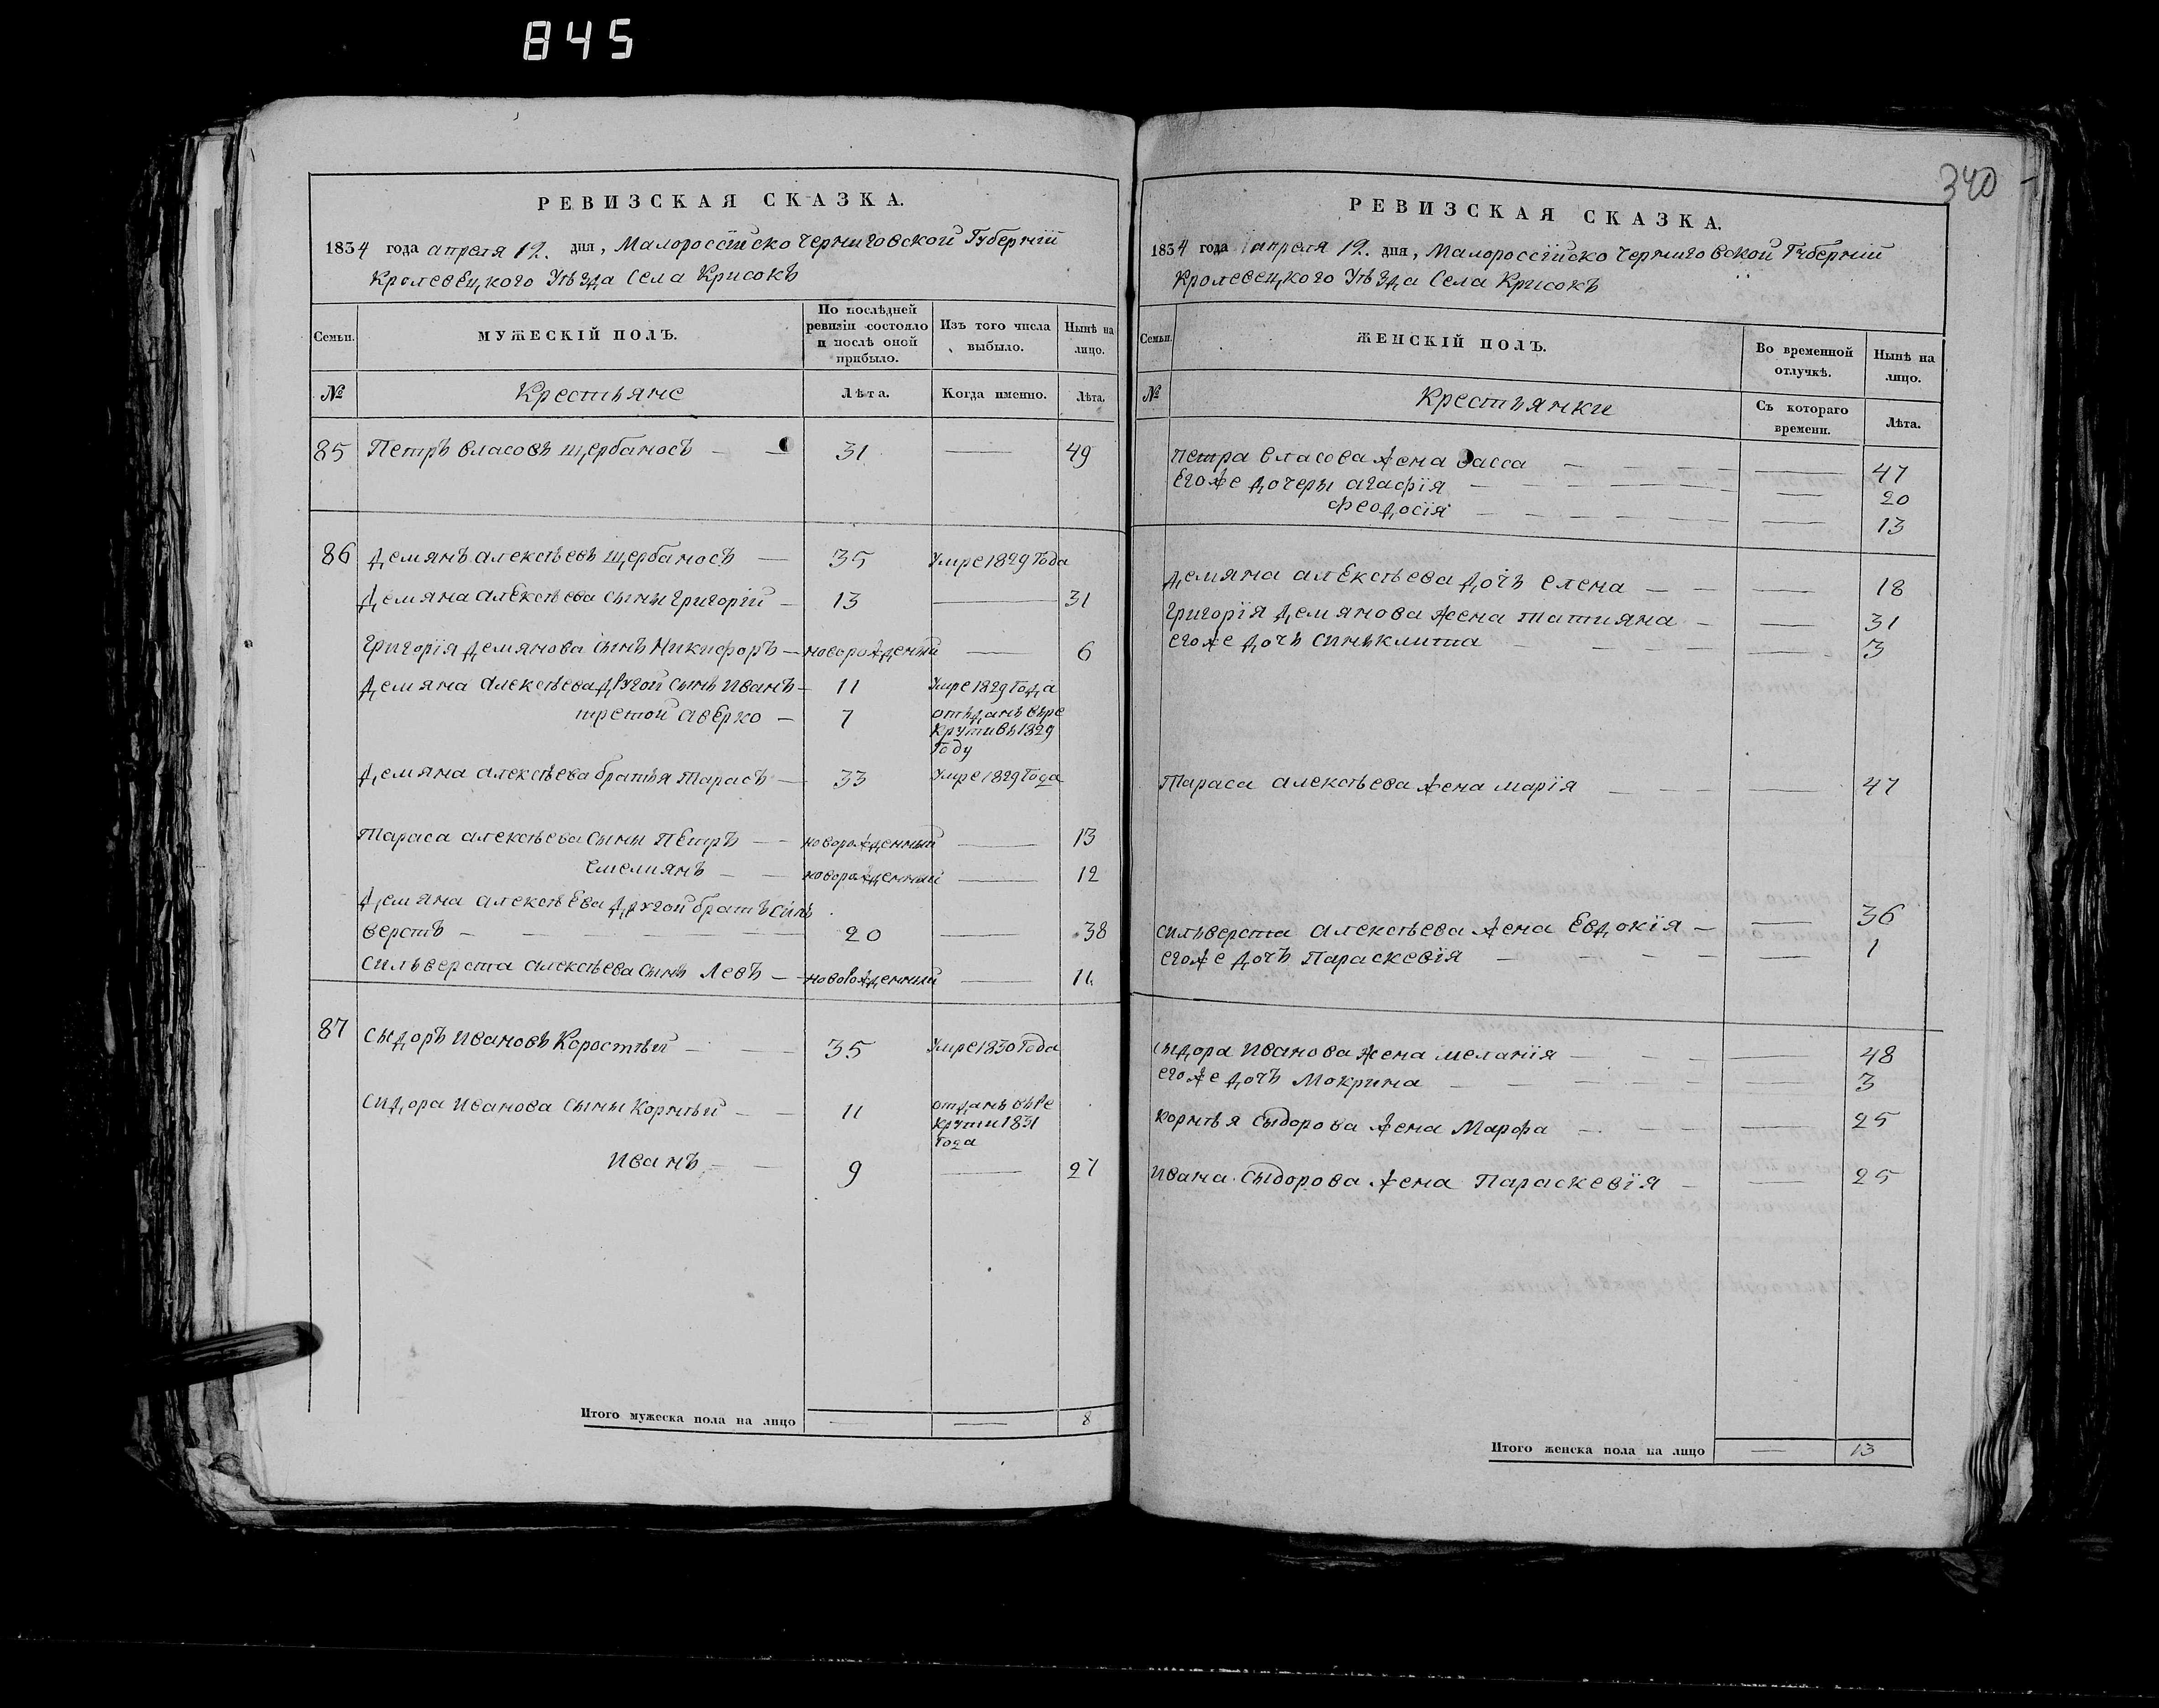 845
340
РЕВИЗСКАЯ СКАЗКА.
1834 года апреля 12. дня, Малороссїйско Черниговской Губернїй
Кролевецкого Уѣзда Села Крисокъ
Семьи.
МУЖЕСКІЙ ПОЛЪ.
По послѣдней ревизіи состояло и послѣ оной прибыло.
Изъ того числа выбыло.
Нынѣ на лицо.
№
Крестьяне
Лѣта.
Когда именно.
Лѣта.
85 Петръ власовъ щербаносъ — 31 — 49
86 Демянъ алексѣевъ щербаносъ — 35 Умре 1829 Года
Демяна алексѣева сыны григорїй — 13 — 31
Григорїя демянова сынъ Никифоръ — новорожденый — 6
Демяна алексѣева другой сынъ иванъ — 11 Умре 1829 Года
третой аверко — 7 отъданъ въре
крути въ 1829
Году
Демяна алексѣева братья тарасъ — 33 Умре 1829 Года
Тараса алексѣева сыны Петръ — новорожденный — 13
емелиянъ — новорожденный — 12
Демяна алексѣева другой братъ силъ
верстъ — 20 — 38
Сильверста алексѣева сынъ Левъ — новорожденный — 11
87 Сыдоръ ивановъ Коростѣй — 35 Умре 1830 Года
Сидора иванова сыны Корнѣй — 11 отданъ въре
крути 1831
Года
иванъ — 9 — 27
Итого мужеска пола на лицо — — 8
РЕВИЗСКАЯ СКАЗКА.
1834 года апреля 12. дня, Малороссїйско Черниговской Губернїй
Кролевецкого Уѣзда Села Крисокъ
Семьи.
ЖЕНСКІЙ ПОЛЪ.
Во временной отлучкѣ.
Нынѣ на лицо.
№
Крестьянки
Съ котораго времени.
Лѣта.
петра власова жена васса — 47
Егоже дочеры агафїя — 20
феодосїя — 13
Демяна алексѣева дочь елена — 18
григорїя демянова жена татияна — 31
егоже дочъ синьклита — 3
Тараса алексѣева жена марїя — 47
сильверста алексѣева жена Евдокїя — 36
егоже дочъ Параскевїя — 1
сыдора иванова жена меланїя — 48
егоже дочъ Мокрина — 3
корнѣя сыдорова жена Марфа — 25
ивана сыдорова жена Параскевїя — 25
Итого женска пола на лицо — 13